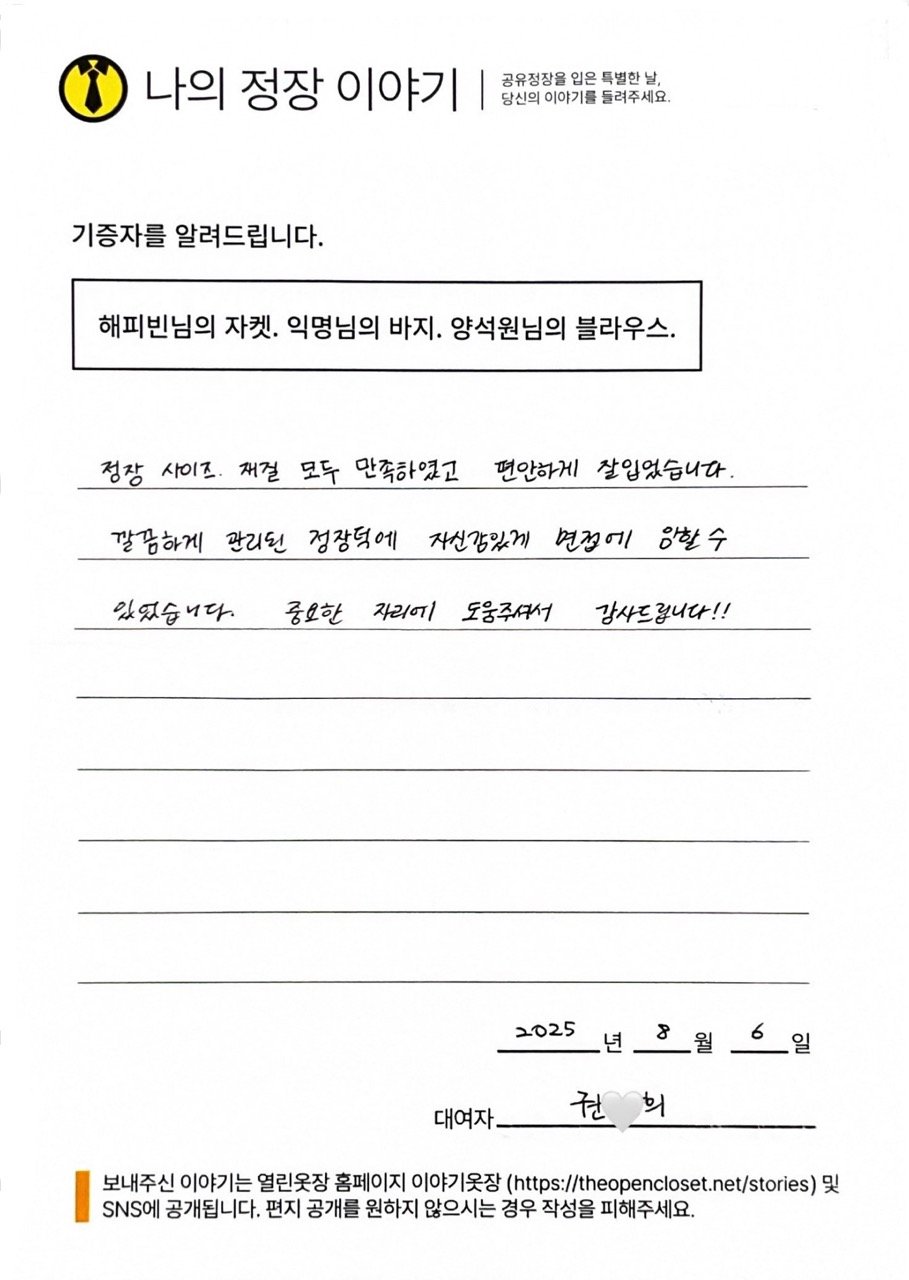 나의 정장 이야기
공유정장을 입은 특별한 날,
당신의 이야기를 들려주세요.
기증자를 알려드립니다.
해피빈님의 자켓. 익명님의 바지. 양석원님의 블라우스.
정장 사이즈. 재질 모두 만족하였고 편안하게 잘입었습니다.
깔끔하게 관리된 정장덕에 자신감있게 면접에 임할 수
있었습니다. 중요한 자리에 도움주셔서 감사드립니다!!
2025 년 8 월 6 일
대여자 권🤍희
보내주신 이야기는 열린옷장 홈페이지 이야기옷장 (https://theopencloset.net/stories) 및
SNS에 공개됩니다. 편지 공개를 원하지 않으시는 경우 작성을 피해주세요.